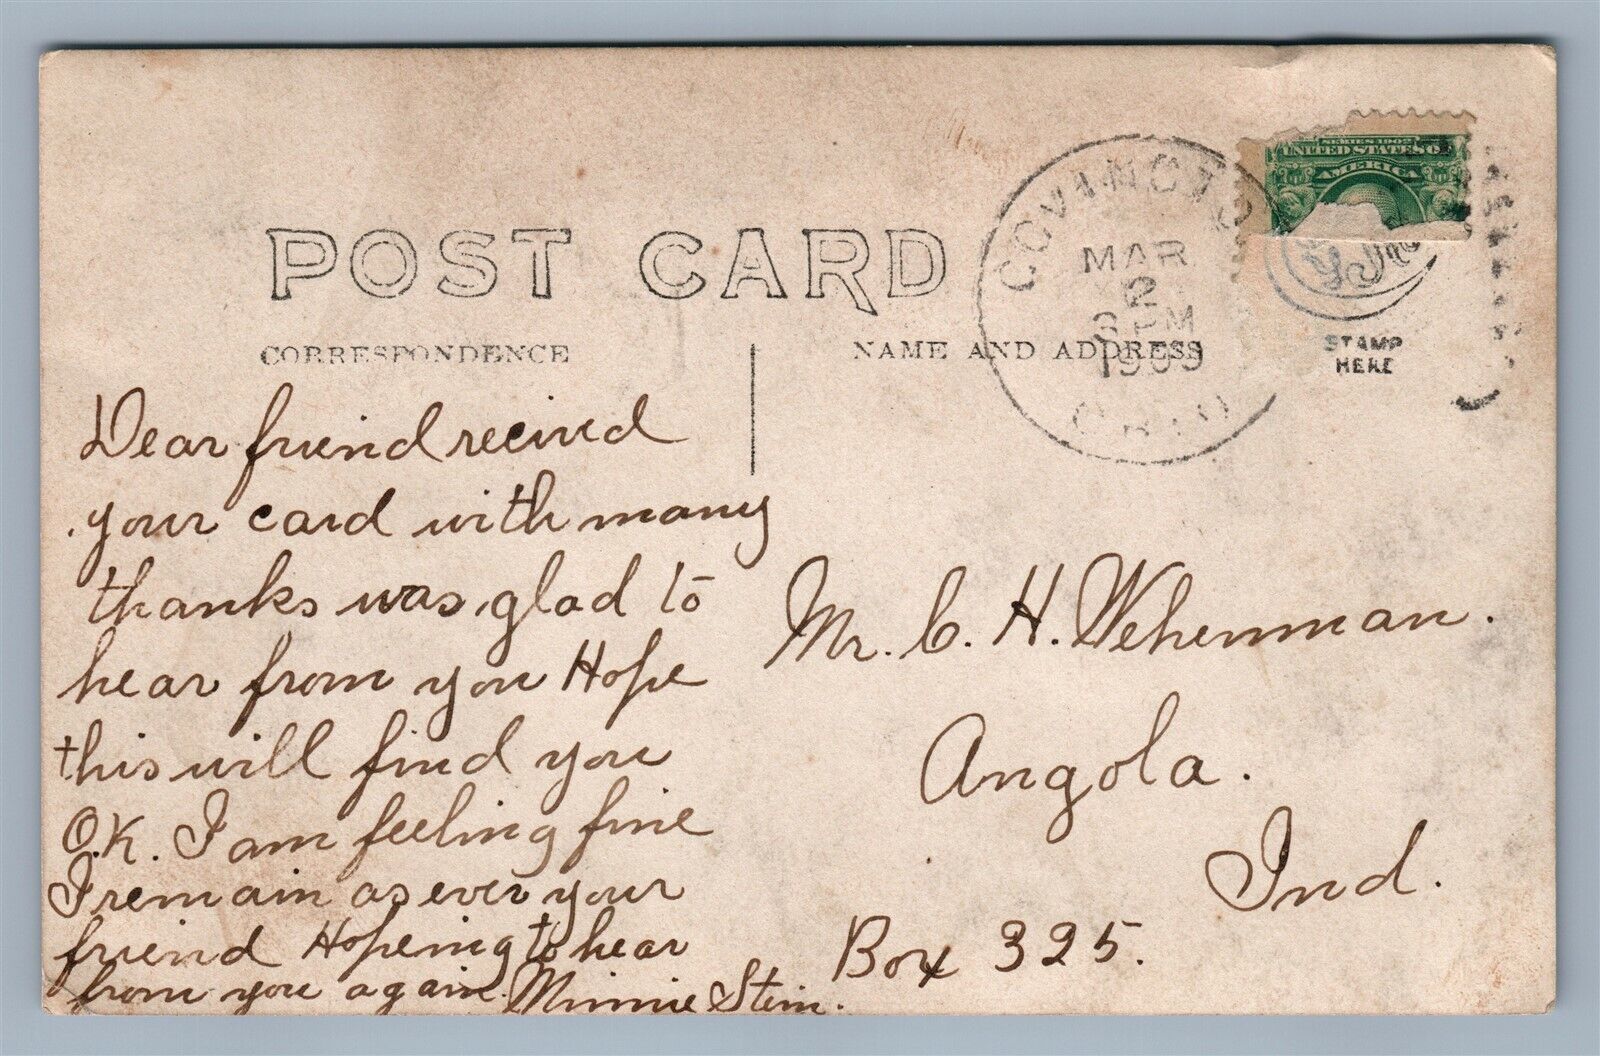 SERIES 1902
UNITED STATES OF
AMERICA
POST CARD
COVINGTO
MAR
2
PM
1909
OHIO
CORRESPONDENCE
NAME AND ADDRESS
STAMP
HERE
Dear friend recived
your card with many
thanks was glad to
hear from you Hope
this will find you
O.K. I am feeling fine
I remain as ever your
friend Hopeing to hear
from you again. Minnie Stein.
Mr. C. H. Wehenman.
Angola.
Ind.
Box 325.